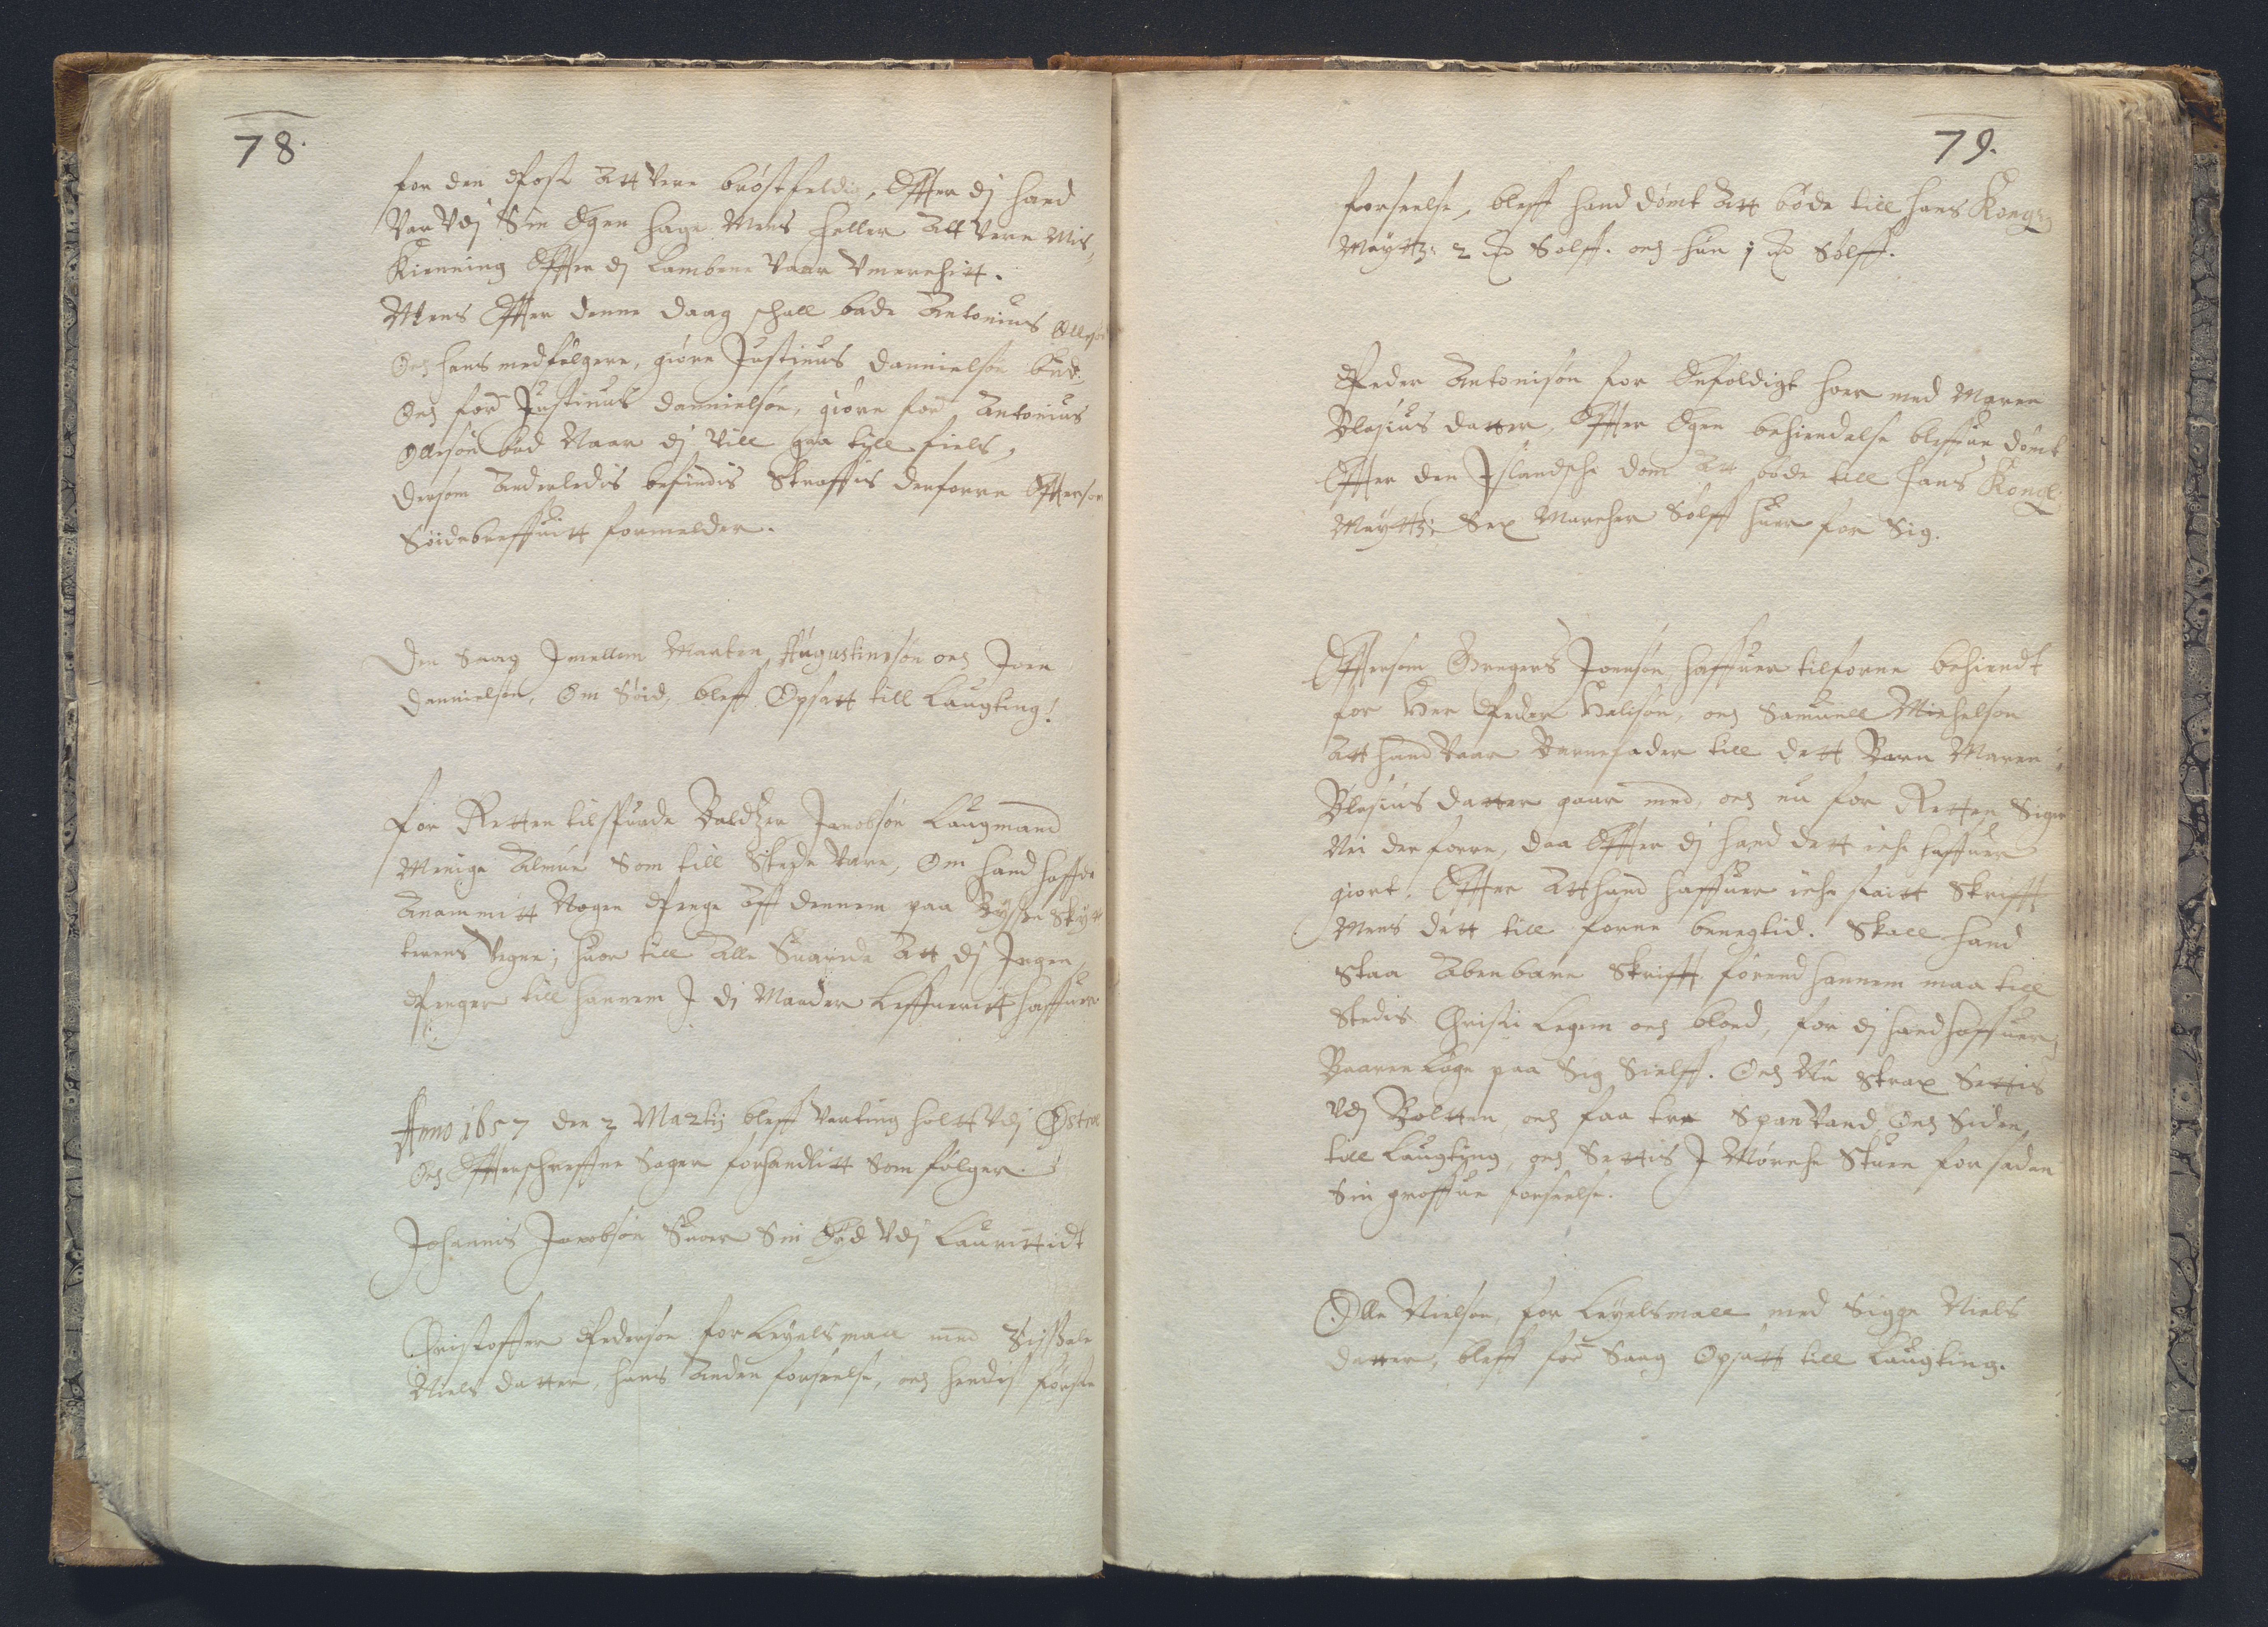 78.
for den Post Att Vere brøstfeldig, Effter dj hand
Var Vdj Sin Egen hage Mens heller Att Vere Mis,
Kienning Effter dj Lambene Vaar Vmerchitt.
Mens Effter denne daag schall bade Antonius Ollesøn
Och hans medfølgere, giøre Justinus Dannielsøn bud.
Och ford Justinus Dannielsøn, giøre ford Antonius
Ollesøn bud Naar dj Vill gaa till fiels,
dersom Anderledis befindis Straffis derforre Efftersom
Søidebreffuitt formelder.
Den Saag Jmellem Marten Augustinesøn och Joen
Dannielsøn, Om Søid, bleff Opsatt till Laugting!
For Retten tilspurde Baldtzer Jacobsøn Laugmand
Menige Almue Som till Stede Vare, Om hand haffde
Anammitt Nogen Penge Aff dennem paa Bysse Skyt
terens Vegne; huor till Alle Suarede Att dj Jngen
Penger till hannem J dj Maader Leffueritt haffuer
Anno 1657 den 2 Martij bleff Varting holtt Vdj Østerø
Och Effterschreffne Sager forhandlitt Som følger.
Johannis Jacobsøn Suoer Sin Eed Vdj Laurittidt
Christoffer Pedersøn for Leyelsmaal med Zisselle
Niels datter, hans Anden forseelse, och hendis første
79.
forseelse, bleff hand dømt Att bøde till hans Kongl:
Maytt: 2 Sølff. och hun 1 Sølff.
Peder Antonisøn for Enfoldigt hoer med Maren
Blasius datter, Effter Egen bekiendelse bleffue dømt
Effter den Jslandsche dom Att bøde till hans Kongl:
Maytt: Sex Marcher Sølff huer for Sig.
Efftersom Gregers Joensøn haffuer tilforne bekiendt
for Her Peder Halisøn, och Samuell Michelsøn
Att hand Vaar Barnefader till dett Barn Maren
Blasius datter gaar med, och nu for Retten Siger
Nei der forre, daa Effter dj hand dett iche haffuer
giort. Effter Att hand haffuer iche staait Skrifft
Mens dett till forne benegtid. Skall hand
Staa Abenbare Skrifft førend hannem maa till
Stedis Christi Legem och bloed, for dj hand haffuer
Baaren Løgn paa Sig Sielff. Och Nu Strax Settis
Vdj Boltten, och faa tre Span Vand, Och Siden
till Laugting, och Settis J Mørche Stuen for saden
Sin groffue forseelse.
Olle Nielsøn, for Leyelsmaal med Sigge Niels
datter, bleff ford Saag Opsatt till Laugting.